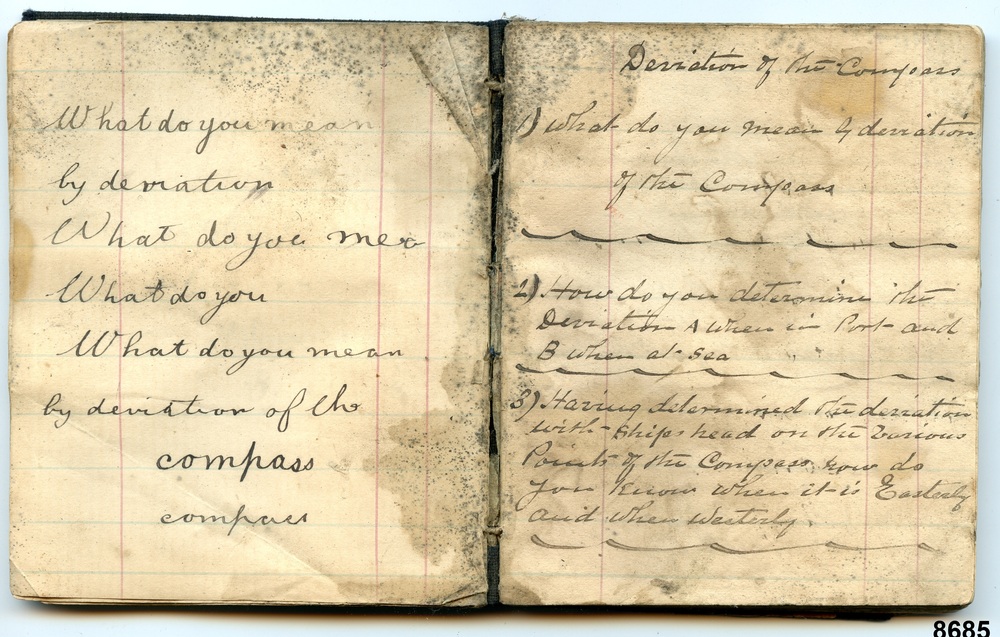 What do you mean
by deviation
What do you mea
What do you
What do you mean
by deviation of the
compass
compass
Deviation of the Compass
1) What do you mean by deviation
of the Compass
2) How do you determine the
Deviation A when in Port and
B when at sea
3) Having determined the deviation
with Ships head on the various
Points of the Compass how do
you know when it is Easterly
and when Westerly.
8685